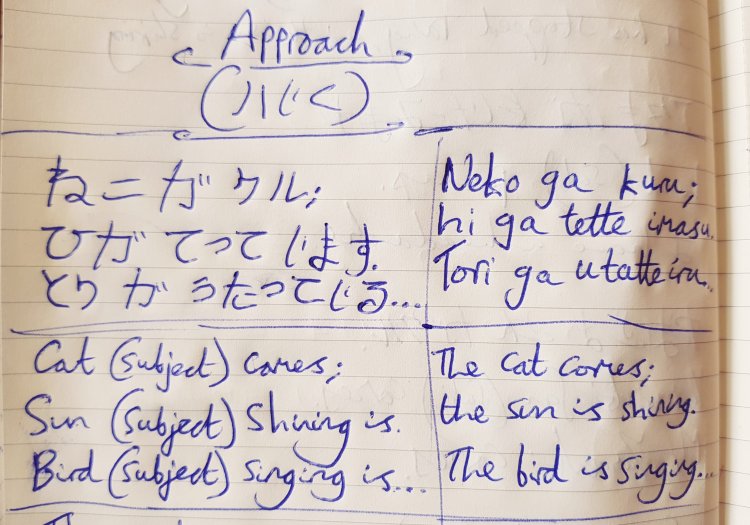 Approach
(ハいく)
ねこ ガ クル;
ひが てって います.
とり が うたっている...
Neko ga kuru;
hi ga tette imasu.
Tori ga utatteiru...
Cat (subject) comes;
Sun (subject) shining is.
Bird (subject) singing is...
The cat comes;
the sun is shining.
The bird is singing...